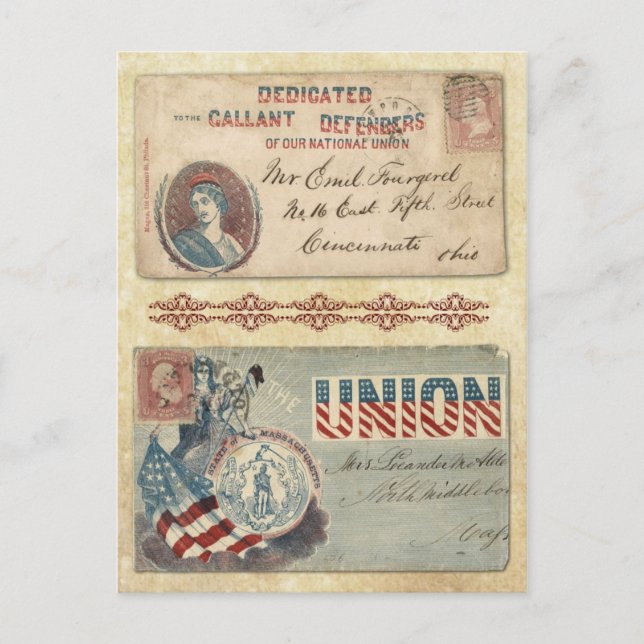 DEDICATED
TO THE GALLANT DEFENDERS
OF OUR NATIONAL UNION
Magee, 316 Chestnut St. Philada.
Mr. Emil. Fourgerel
No. 16 East. Fifth. Street
Cincinnati
Ohio
THE UNION
STATE OF MASSACHUSETTS
Mrs. Leander
North Middlebor
Mass